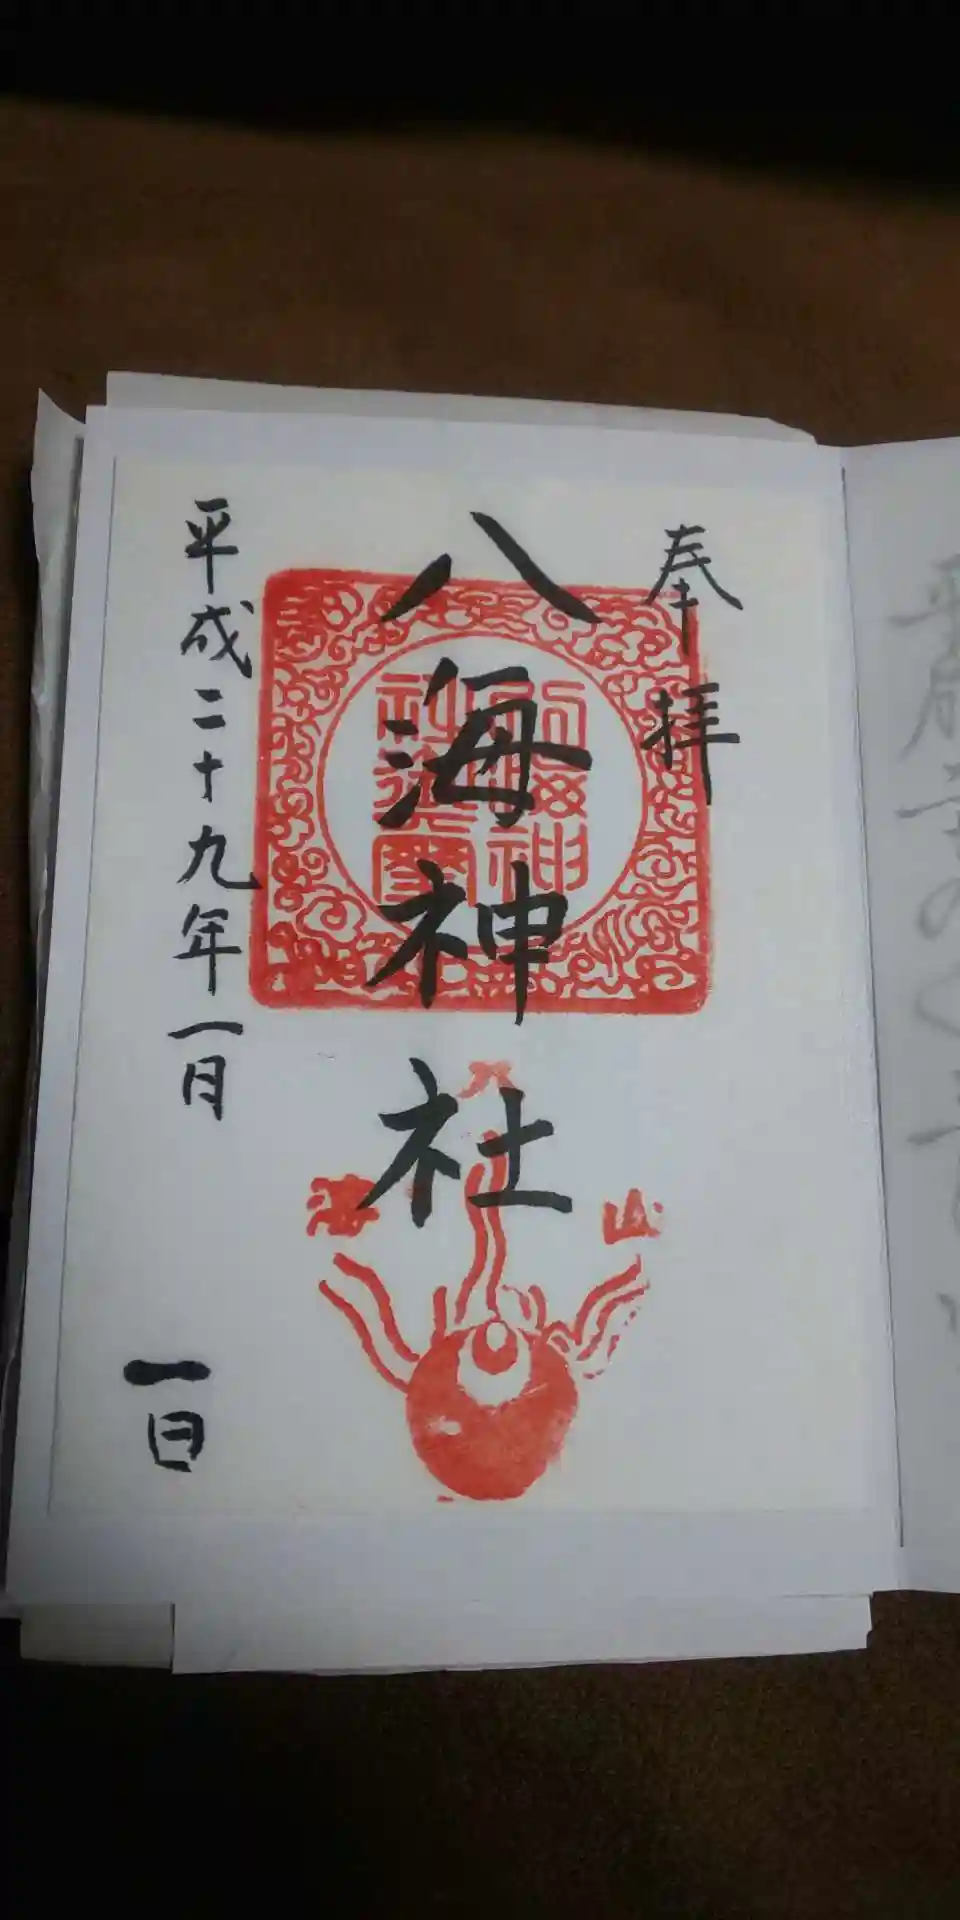 奉拝
八海神社
平成二十九年一月
一日
八
海
山